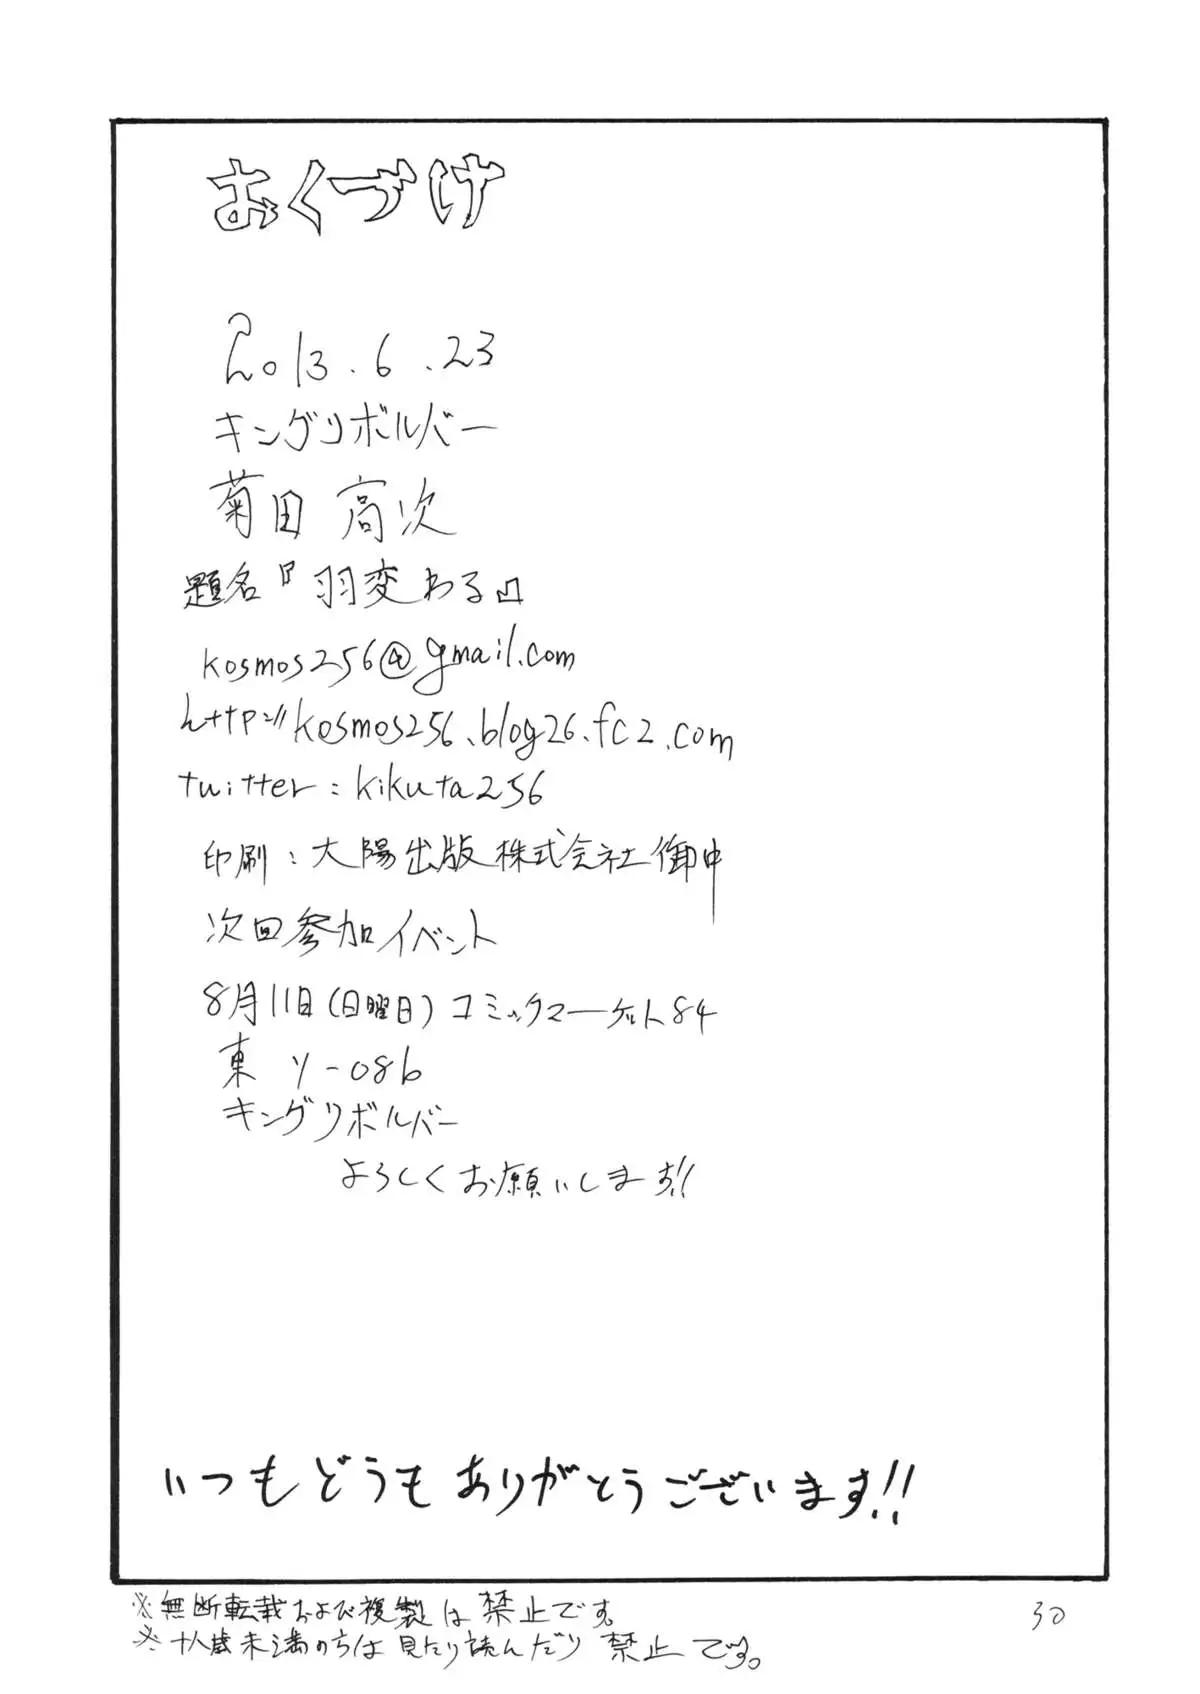 おくづけ
2013.6.23
キングリボルバー
菊田 高次
題名『羽変わる』
kosmos256@gmail.com
http://kosmos256.blog26.fc2.com
twitter:kikuta256
印刷:大陽出版株式会社御中
次回参加イベント
8月11日(日曜日)コミックマーケット84
東 ソ-08b
キングリボルバー
よろしくお願いします!!
いつもどうもありがとうございます!!
※無断転載および複製は禁止です。
※十八歳未満の方は見たり読んだり禁止です。
30